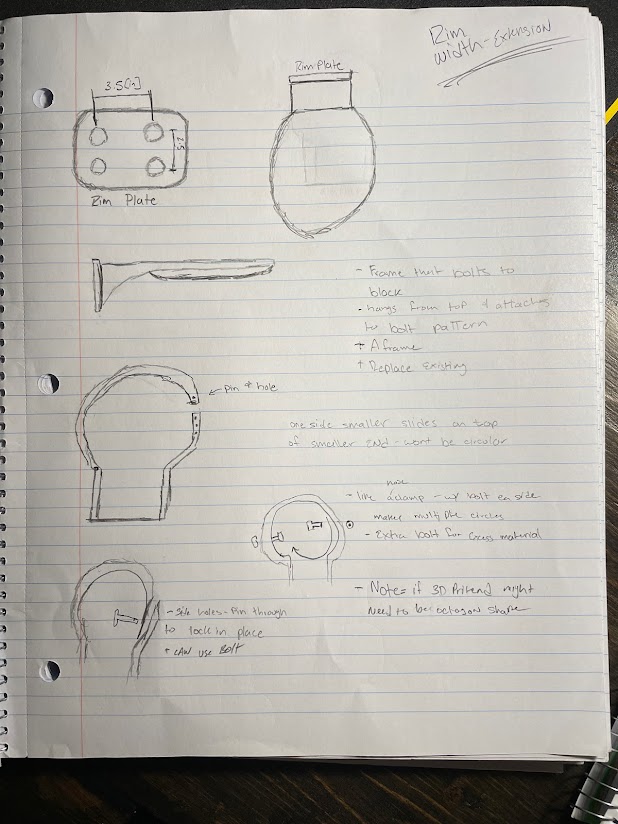 Rim
width-Extension
Rim Plate
3.5[in]
2.5
Rim Plate
- Frame that bolts to
block
- hangs from top & attaches
to bolt pattern
+ A frame
+ Replace Existing
pin & hole
one side smaller slides on top
of smaller End - wont be circular
hose
- like a clamp - w/ bolt ea side
makes multiple circles
- Extra bolt for Cross material
- Side holes - Pin through
to lock in place
+ CAN use Bolt
- Note = if 3D Printend might
Need to be octogon shape